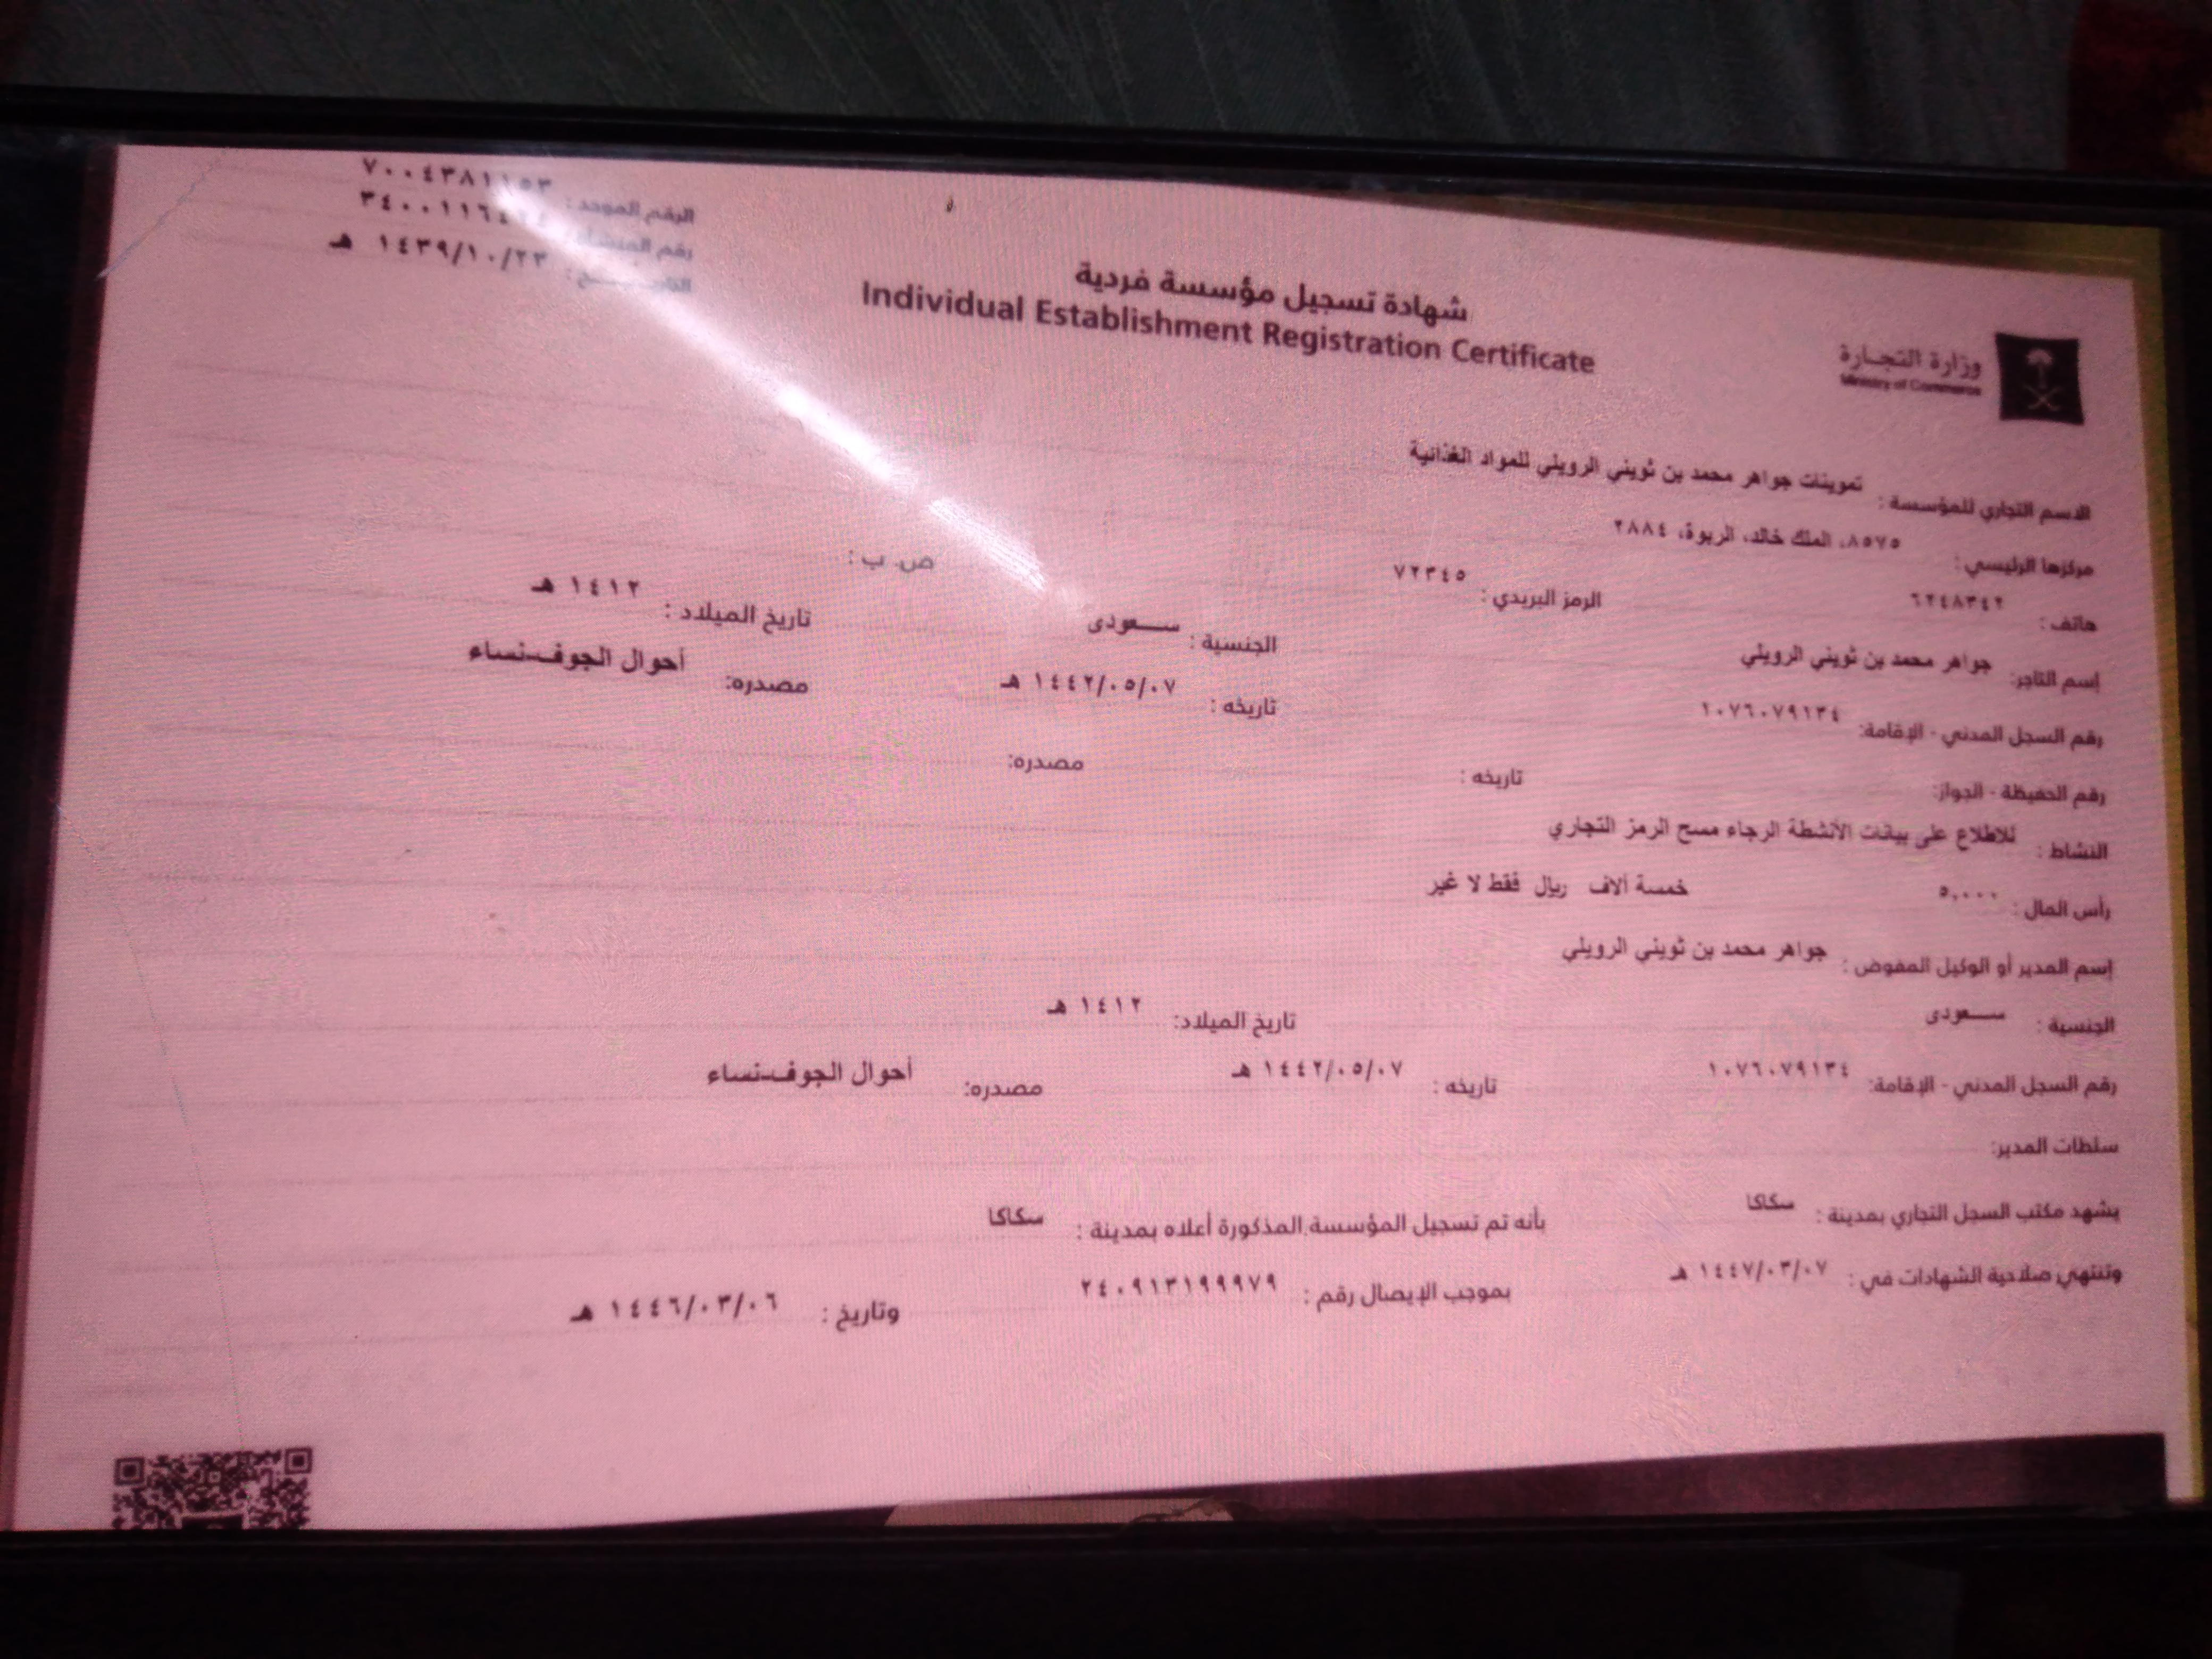 الرقم الموحد : ٧٠٠٤٣٨١١٥٣
رقم المنشأة :
التاريخ : ١٤٣٩/١٠/٢٣ هـ
شهادة تسجيل مؤسسة فردية
Individual Establishment Registration Certificate
وزارة التجارة
Ministry of Commerce
الاسم التجاري للمؤسسة : تموينات جواهر محمد بن ثويني الرويلي للمواد الغذائية
مركزها الرئيسي : ٨٥٧٥، الملك خالد، الربوة، ٢٨٨٤
هاتف : ٦٢٤٨٣٤٢ الرمز البريدي : ٧٢٣٤٥ ص. ب :
إسم التاجر: جواهر محمد بن ثويني الرويلي الجنسية : سعودى تاريخ الميلاد : ١٤١٢ هـ
رقم السجل المدني - الإقامة: ١٠٧٦٠٧٩١٣٤ تاريخه : ١٤٤٢/٠٥/٠٧ هـ مصدره: أحوال الجوف-نساء
رقم الحفيظة - الجواز: تاريخه : مصدره:
النشاط : للاطلاع على بيانات الأنشطة الرجاء مسح الرمز التجاري
رأس المال : ٥,٠٠٠ خمسة ألاف ريال فقط لا غير
إسم المدير أو الوكيل المفوض : جواهر محمد بن ثويني الرويلي
الجنسية : سعودى تاريخ الميلاد: ١٤١٢ هـ
رقم السجل المدني - الإقامة: ١٠٧٦٠٧٩١٣٤ تاريخه : ١٤٤٢/٠٥/٠٧ هـ مصدره: أحوال الجوف-نساء
سلطات المدير:
يشهد مكتب السجل التجاري بمدينة : سكاكا بأنه تم تسجيل المؤسسة المذكورة أعلاه بمدينة : سكاكا
وتنتهي صلاحية الشهادات في : ١٤٤٧/٠٣/٠٧ هـ بموجب الإيصال رقم : ٢٤٠٩١٣١٩٩٩٧٩ وتاريخ : ١٤٤٦/٠٣/٠٦ هـ